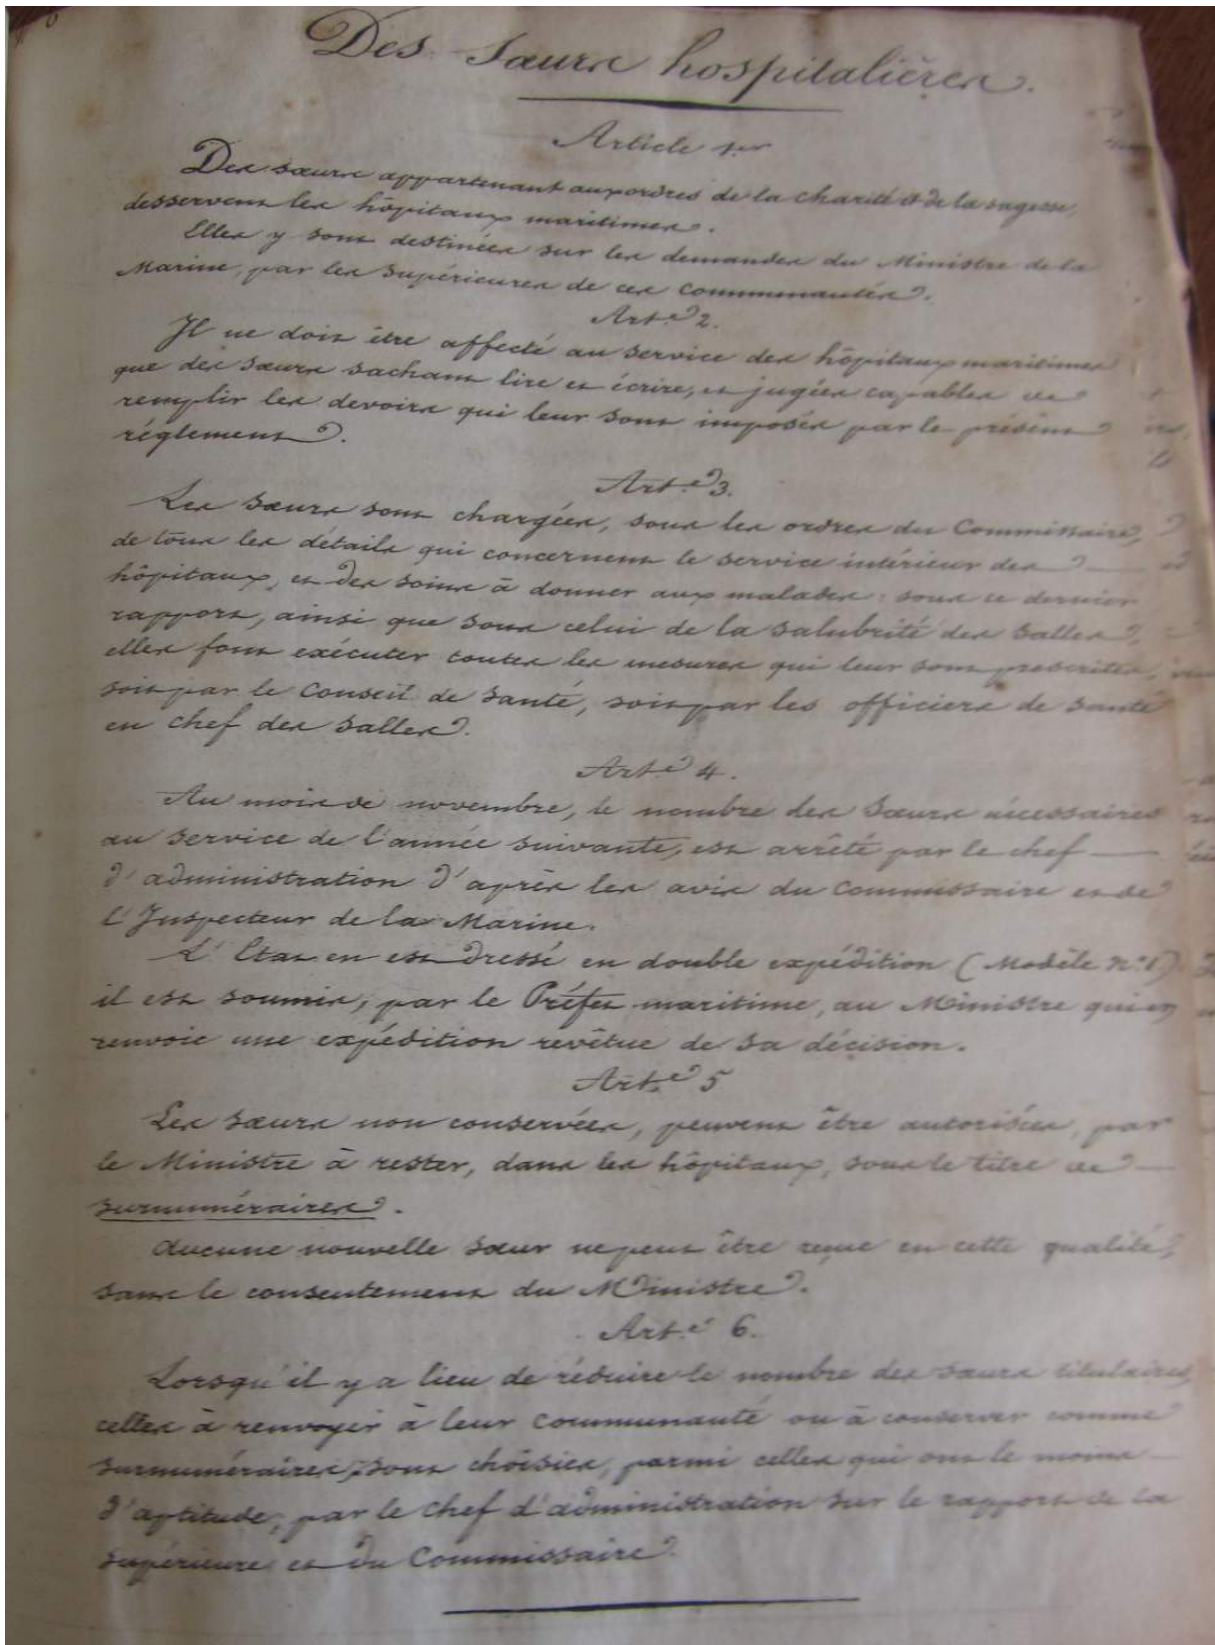 Des Sœurs hospitalières.
Article 1er
Des sœurs appartenant aux ordres de la charité et de la sagesse,
desservent les hôpitaux maritimes.
Elles y sont destinées sur les demandes du Ministre de la
Marine, par les Supérieures de ces Communautés.
Art.e 2.
Il ne doit être affecté au service des hôpitaux maritimes
que des sœurs sachant lire et écrire, et jugées capables de
remplir les devoirs qui leur sont imposés par le présent
réglement.
Art.e 3.
Les sœurs sont chargées, sous les ordres du Commissaire,
de tous les détails qui concernent le service intérieur des
hôpitaux, et des soins à donner aux malades : sous ce dernier
rapport, ainsi que sous celui de la salubrité des salles,
elles font exécuter toutes les mesures qui leur sont prescrites,
soit par le Conseil de Santé, soit par les officiers de santé
en chef des salles.
Art.e 4.
Au mois de novembre, le nombre des Sœurs nécessaires
au service de l'année suivante, est arrêté par le chef
d'administration d'après les avis du Commissaire et de
l'Inspecteur de la Marine.
L'Etat en est dressé en double expédition (Modèle n.o 1)
il est soumis, par le Préfet maritime, au Ministre qui en
renvoie une expédition revêtue de sa décision.
Art.e 5
Les sœurs non conservées, peuvent être autorisées, par
le Ministre à rester, dans les hôpitaux, sous le titre de
surnuméraires.
Aucune nouvelle sœur ne peut être reçue en cette qualité,
sans le consentement du Ministre.
Art.e 6.
Lorsqu'il y a lieu de réduire le nombre des sœurs titulaires,
celles à renvoyer à leur Communauté ou à conserver comme
surnuméraires, sont choisies, parmi celles qui ont le moins
d'aptitude, par le chef d'administration sur le rapport de la
supérieure et du Commissaire.